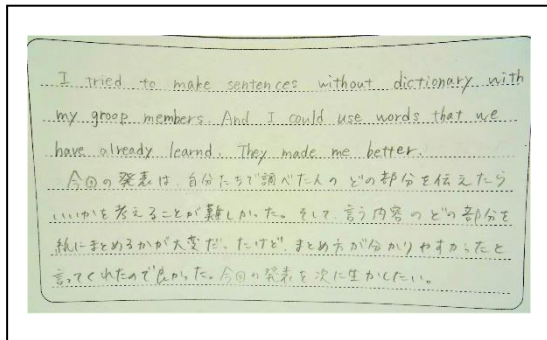 I tried to make sentences without dictionary with
my groop members. And I could use words that we
have already learnd. They made me better.
今回の発表は、自分たちで調べた人のどの部分を伝えたら
いいかを考えることが難しかった。そして、言う内容のどの部分を
紙にまとめるかが大変だったけど、まとめ方が分かりやすかったと
言ってくれたので良かった。今回の発表を次に生かしたい。